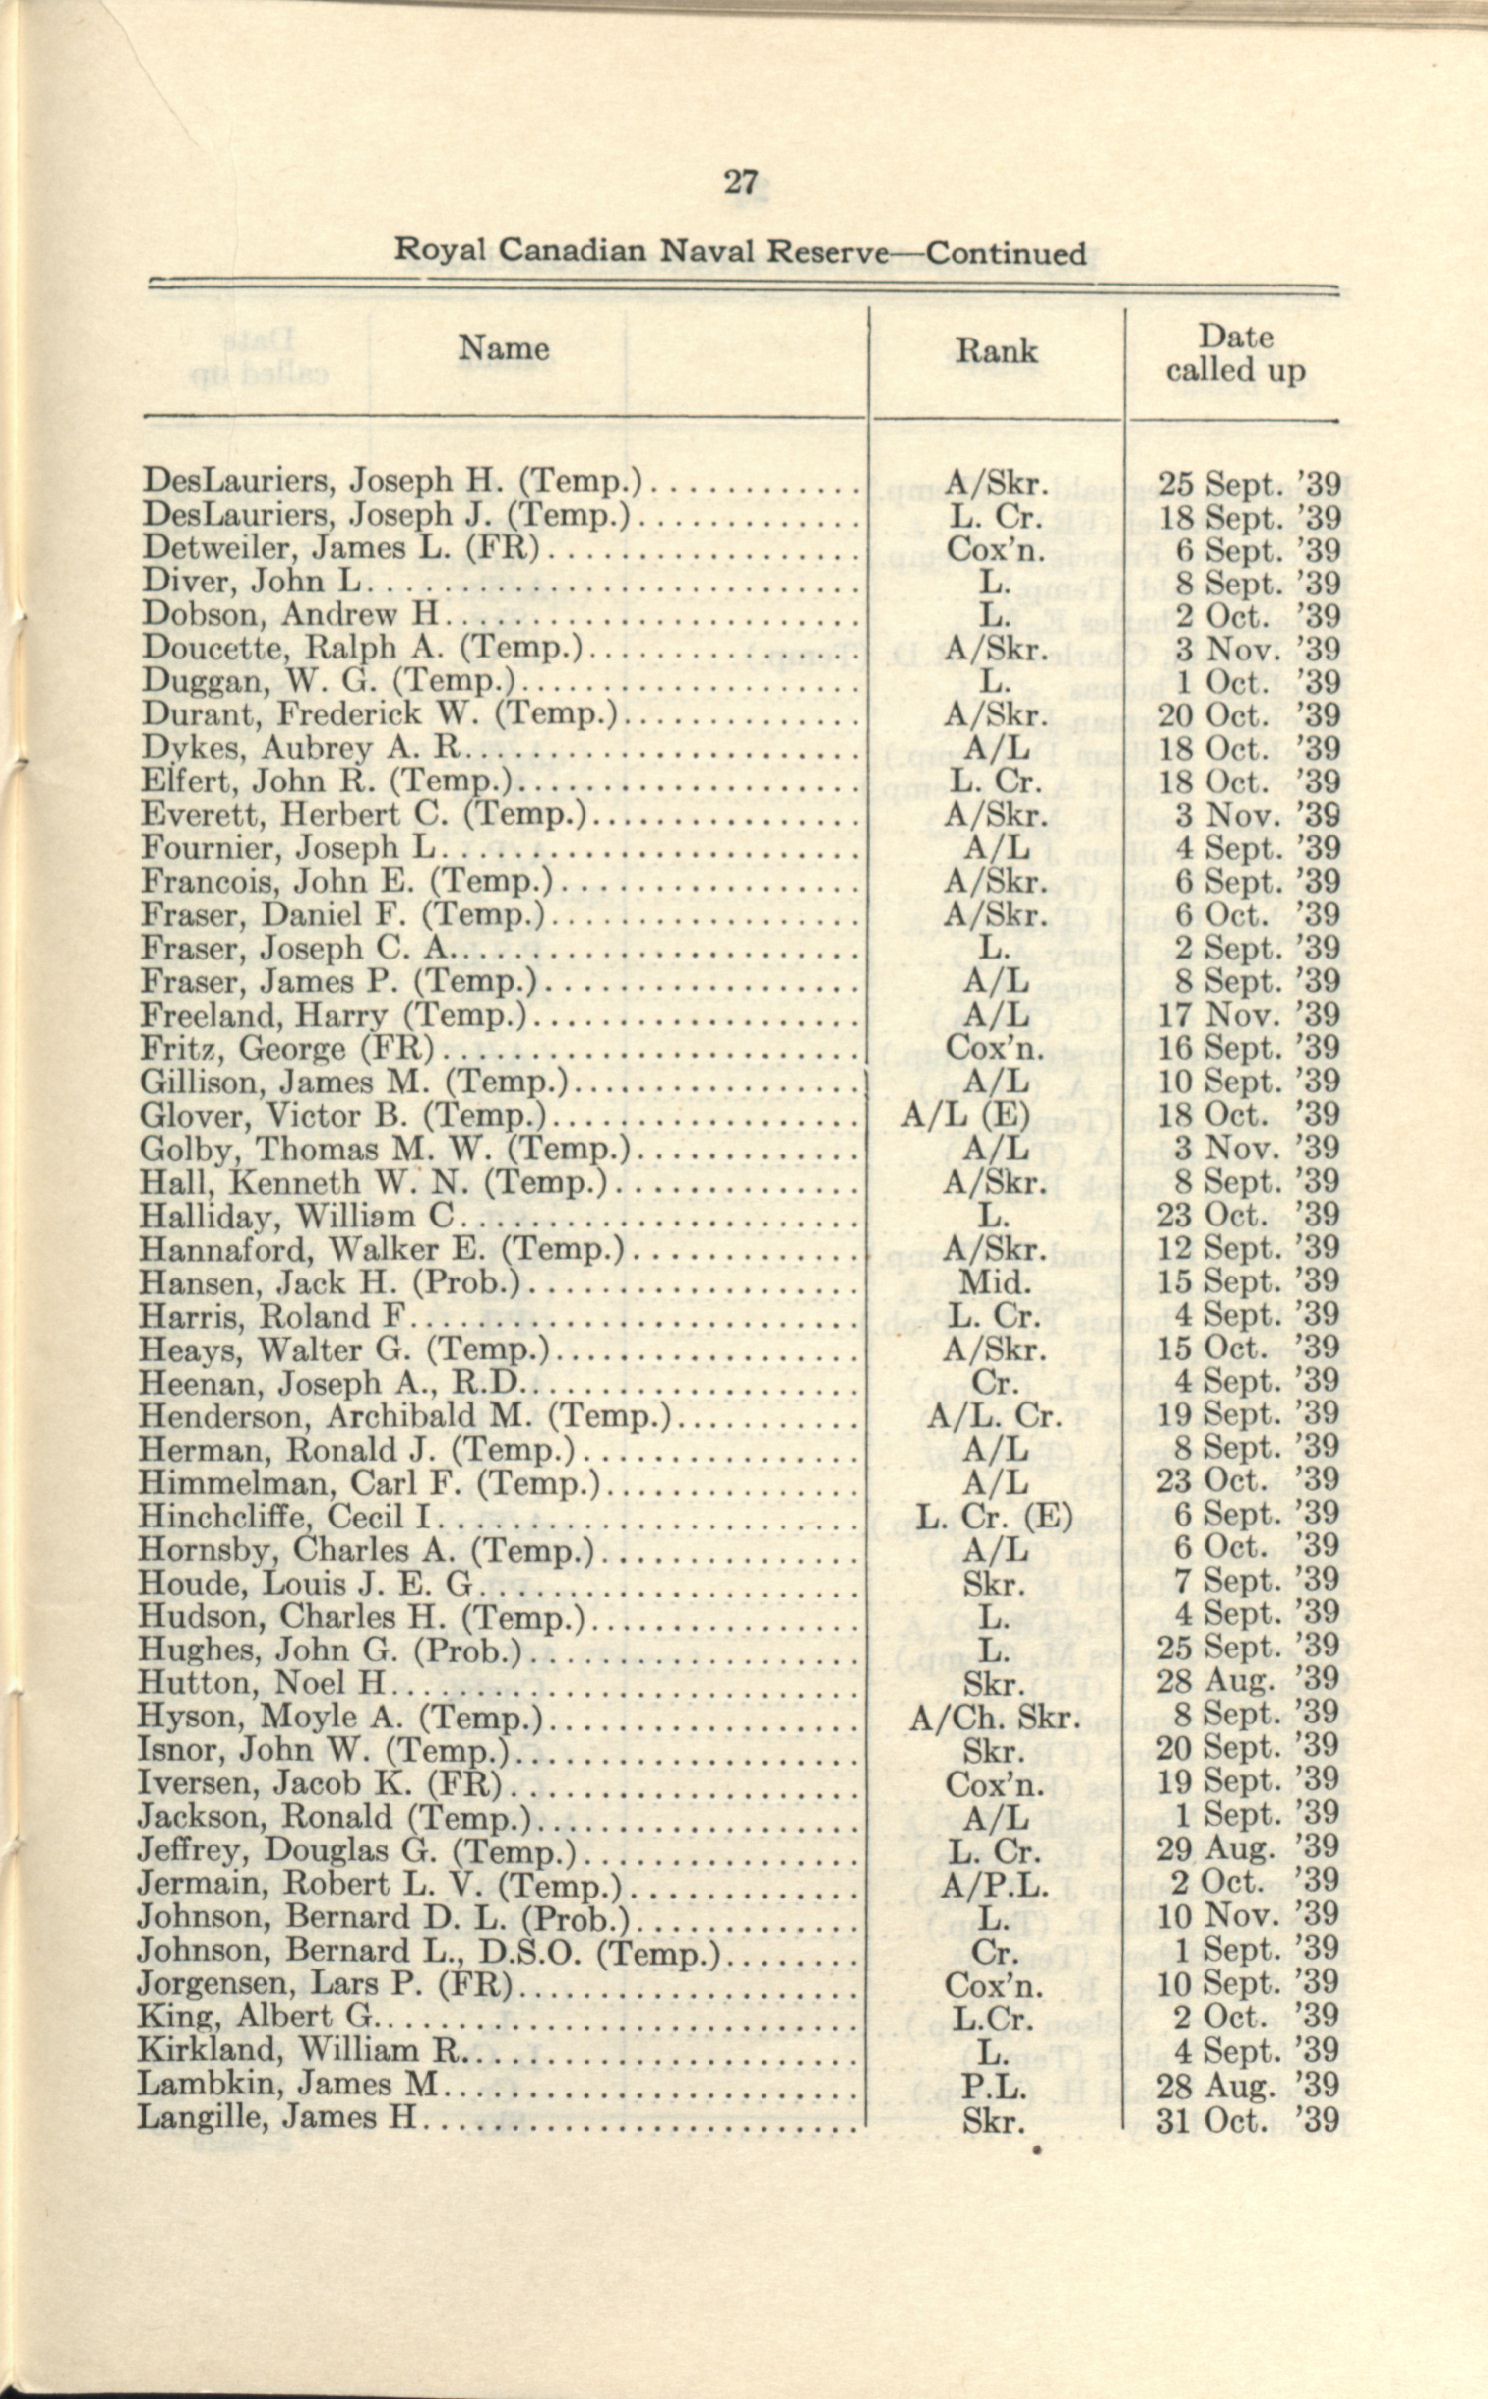 27
Royal Canadian Naval Reserve—Continued
Name Rank Date called up
DesLauriers, Joseph H. (Temp.) A/Skr. 25 Sept. '39
DesLauriers, Joseph J. (Temp.) L. Cr. 18 Sept. '39
Detweiler, James L. (FR) Cox'n. 6 Sept. '39
Diver, John L. L. 8 Sept. '39
Dobson, Andrew H. L. 2 Oct. '39
Doucette, Ralph A. (Temp.) A/Skr. 3 Nov. '39
Duggan, W. G. (Temp.) L. 1 Oct. '39
Durant, Frederick W. (Temp.) A/Skr. 20 Oct. '39
Dykes, Aubrey A. R. A/L 18 Oct. '39
Elfert, John R. (Temp.) L. Cr. 18 Oct. '39
Everett, Herbert C. (Temp.) A/Skr. 3 Nov. '39
Fournier, Joseph L. A/L 4 Sept. '39
Francois, John E. (Temp.) A/Skr. 6 Sept. '39
Fraser, Daniel F. (Temp.) A/Skr. 6 Oct. '39
Fraser, Joseph C. A. L. 2 Sept. '39
Fraser, James P. (Temp.) A/L 8 Sept. '39
Freeland, Harry (Temp.) A/L 17 Nov. '39
Fritz, George (FR) Cox'n. 16 Sept. '39
Gillison, James M. (Temp.) A/L 10 Sept. '39
Glover, Victor B. (Temp.) A/L (E) 18 Oct. '39
Golby, Thomas M. W. (Temp.) A/L 3 Nov. '39
Hall, Kenneth W. N. (Temp.) A/Skr. 8 Sept. '39
Halliday, William C. L. 23 Oct. '39
Hannaford, Walker E. (Temp.) A/Skr. 12 Sept. '39
Hansen, Jack H. (Prob.) Mid. 15 Sept. '39
Harris, Roland F. L. Cr. 4 Sept. '39
Heays, Walter G. (Temp.) A/Skr. 15 Oct. '39
Heenan, Joseph A., R.D. Cr. 4 Sept. '39
Henderson, Archibald M. (Temp.) A/L. Cr. 19 Sept. '39
Herman, Ronald J. (Temp.) A/L 8 Sept. '39
Himmelman, Carl F. (Temp.) A/L 23 Oct. '39
Hinchcliffe, Cecil I. L. Cr. (E) 6 Sept. '39
Hornsby, Charles A. (Temp.) A/L 6 Oct. '39
Houde, Louis J. E. G. Skr. 7 Sept. '39
Hudson, Charles H. (Temp.) L. 4 Sept. '39
Hughes, John G. (Prob.) L. 25 Sept. '39
Hutton, Noel H. Skr. 28 Aug. '39
Hyson, Moyle A. (Temp.) A/Ch. Skr. 8 Sept. '39
Isnor, John W. (Temp.) Skr. 20 Sept. '39
Iversen, Jacob K. (FR) Cox'n. 19 Sept. '39
Jackson, Ronald (Temp.) A/L 1 Sept. '39
Jeffrey, Douglas G. (Temp.) L. Cr. 29 Aug. '39
Jermain, Robert L. V. (Temp.) A/P.L. 2 Oct. '39
Johnson, Bernard D. L. (Prob.) L. 10 Nov. '39
Johnson, Bernard L., D.S.O. (Temp.) Cr. 1 Sept. '39
Jorgensen, Lars P. (FR) Cox'n. 10 Sept. '39
King, Albert G. L.Cr. 2 Oct. '39
Kirkland, William R. L. 4 Sept. '39
Lambkin, James M. P.L. 28 Aug. '39
Langille, James H. Skr. 31 Oct. '39